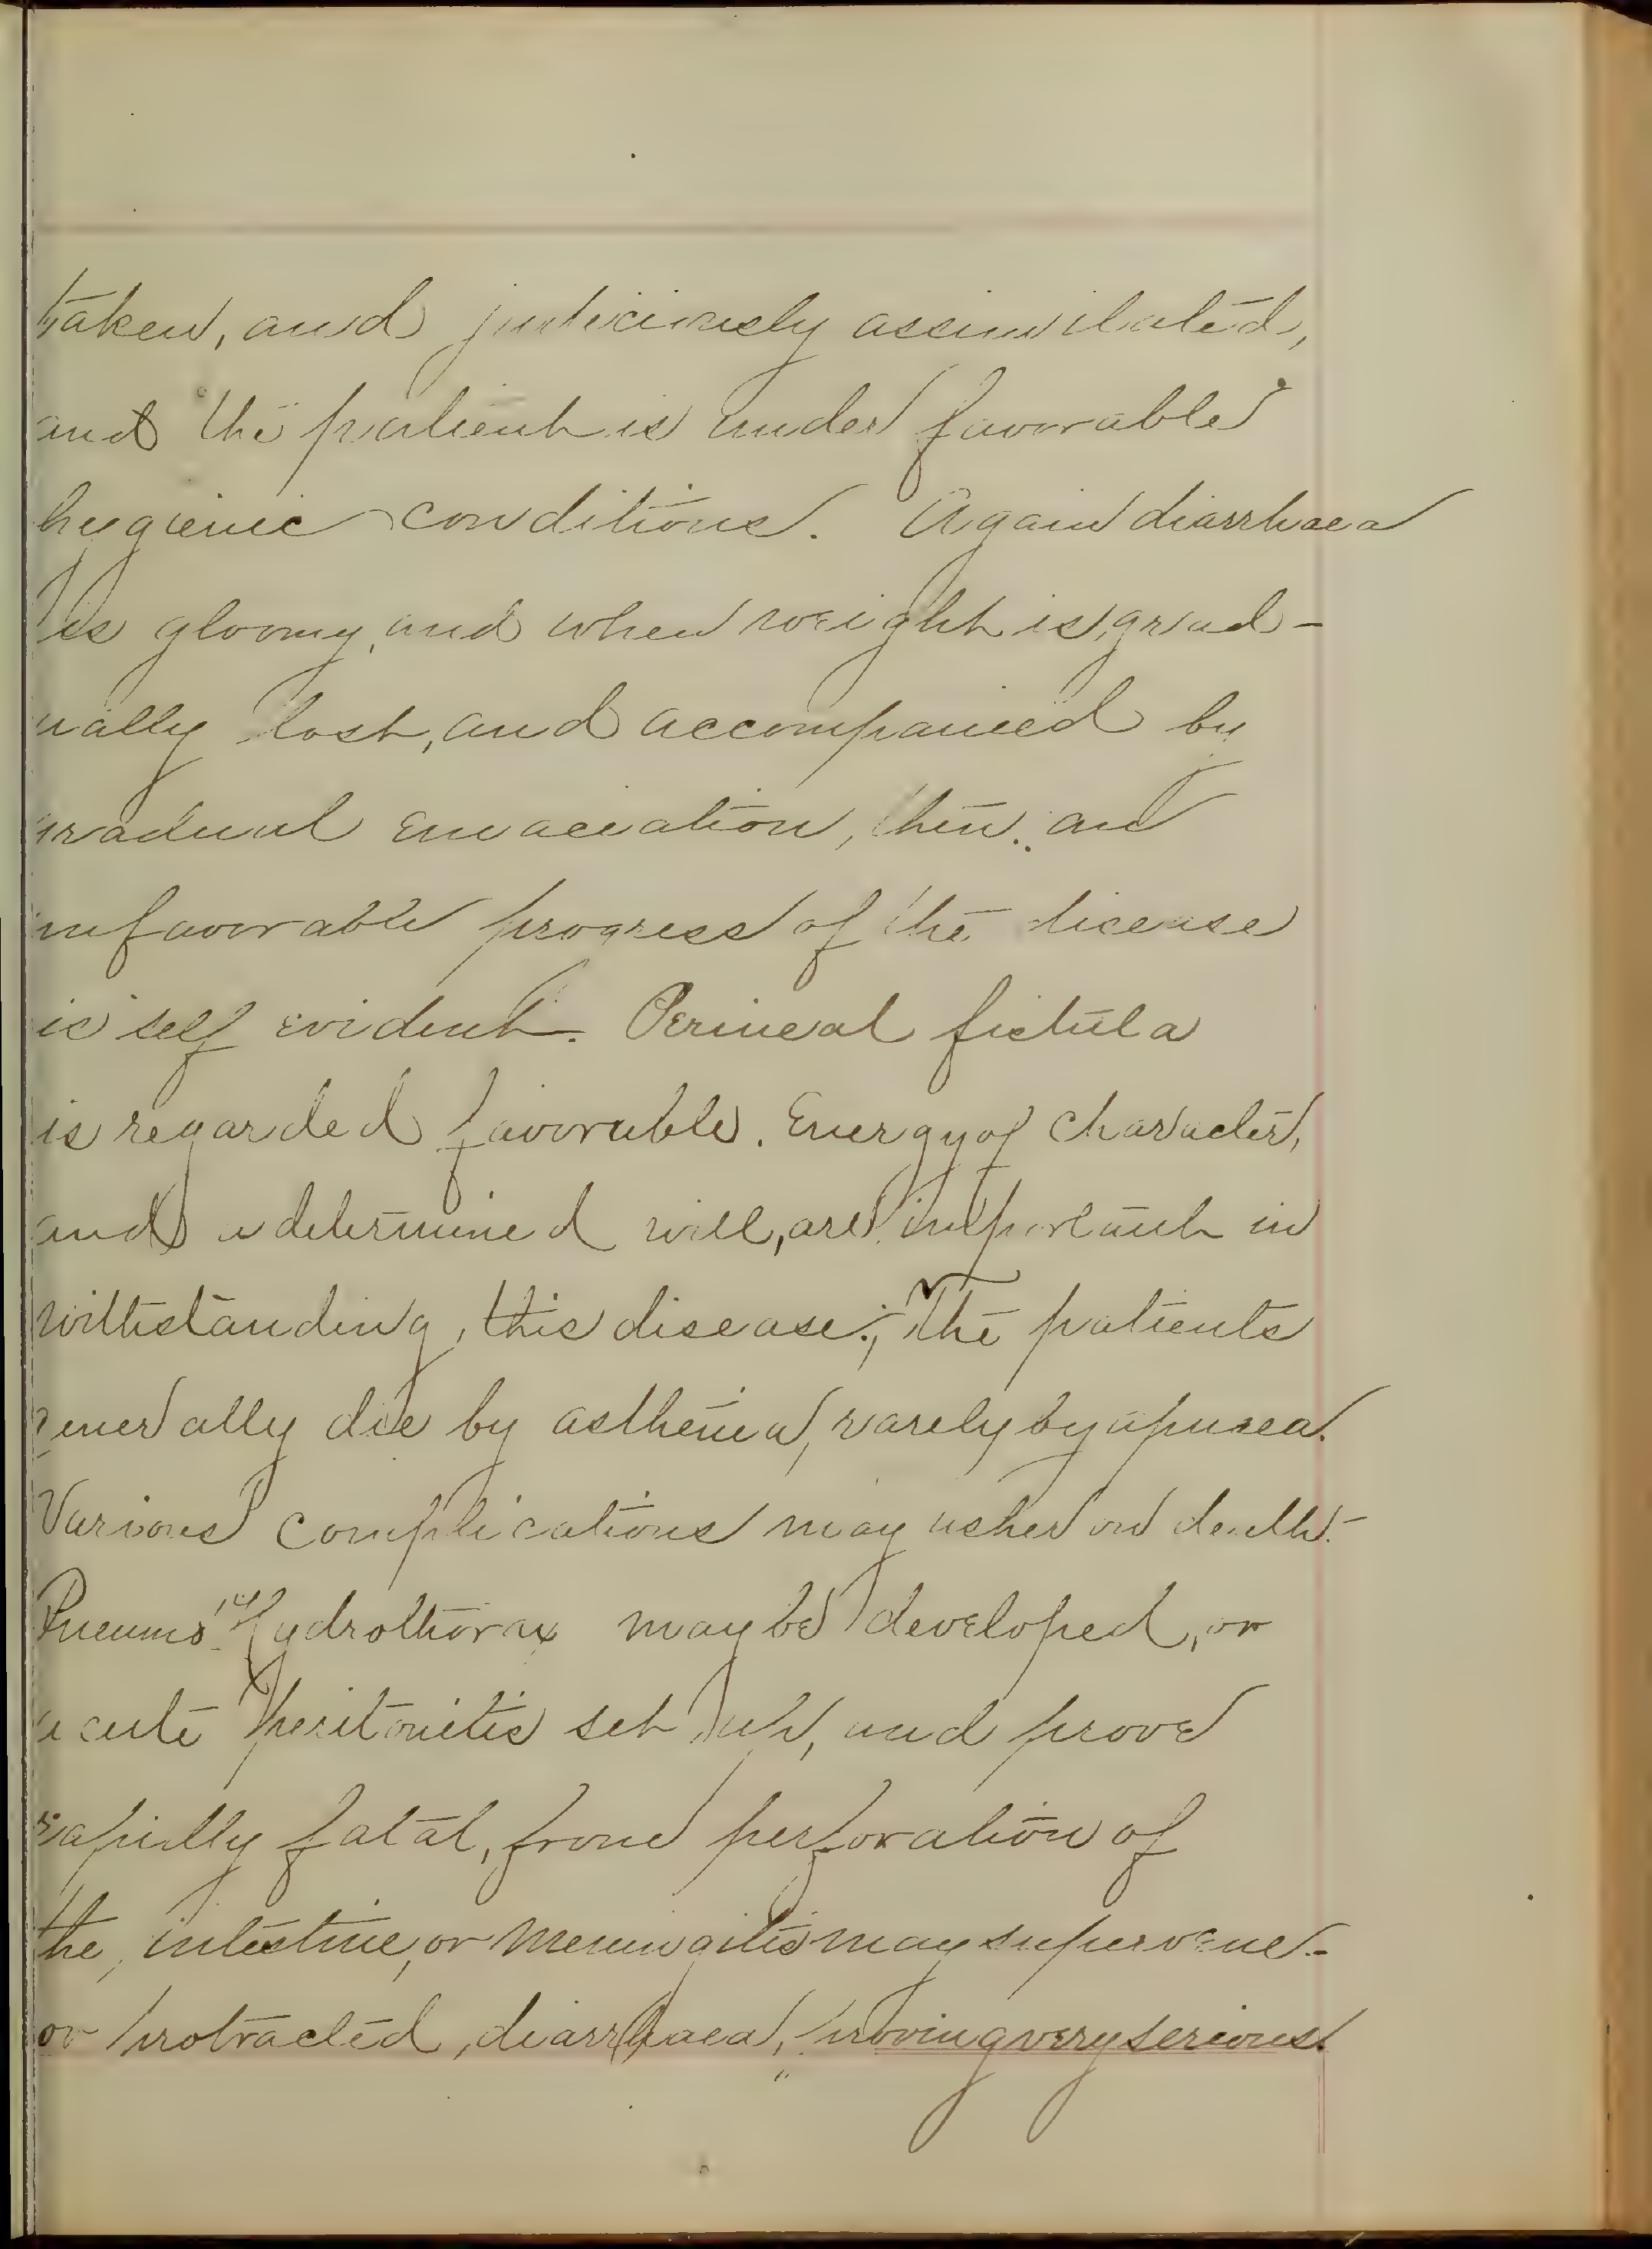 taken, and judiciously assimilated,
and the patient is under favorable
hygienic conditions. Again diarrhaea
is gloomy, and when weight is grad-
ually lost, and accompanied by
gradual emaciation, then an
unfavorable progress of the disease
is self evident. Perineal fistula
is regarded favorable. Energy of character,
and a determined will, are important in
withstanding, this disease; The patients
generally die by asthenia, rarely by apnaea.
Various complications may usher on death.-
Pneumo Hydrothorax may be developed, or
acute peritonitis set up, and prove
rapidly fatal, from perforation of
the, intestine, or Meningitis may supervene.-
or protracted, diarrhaea, proving very serious.